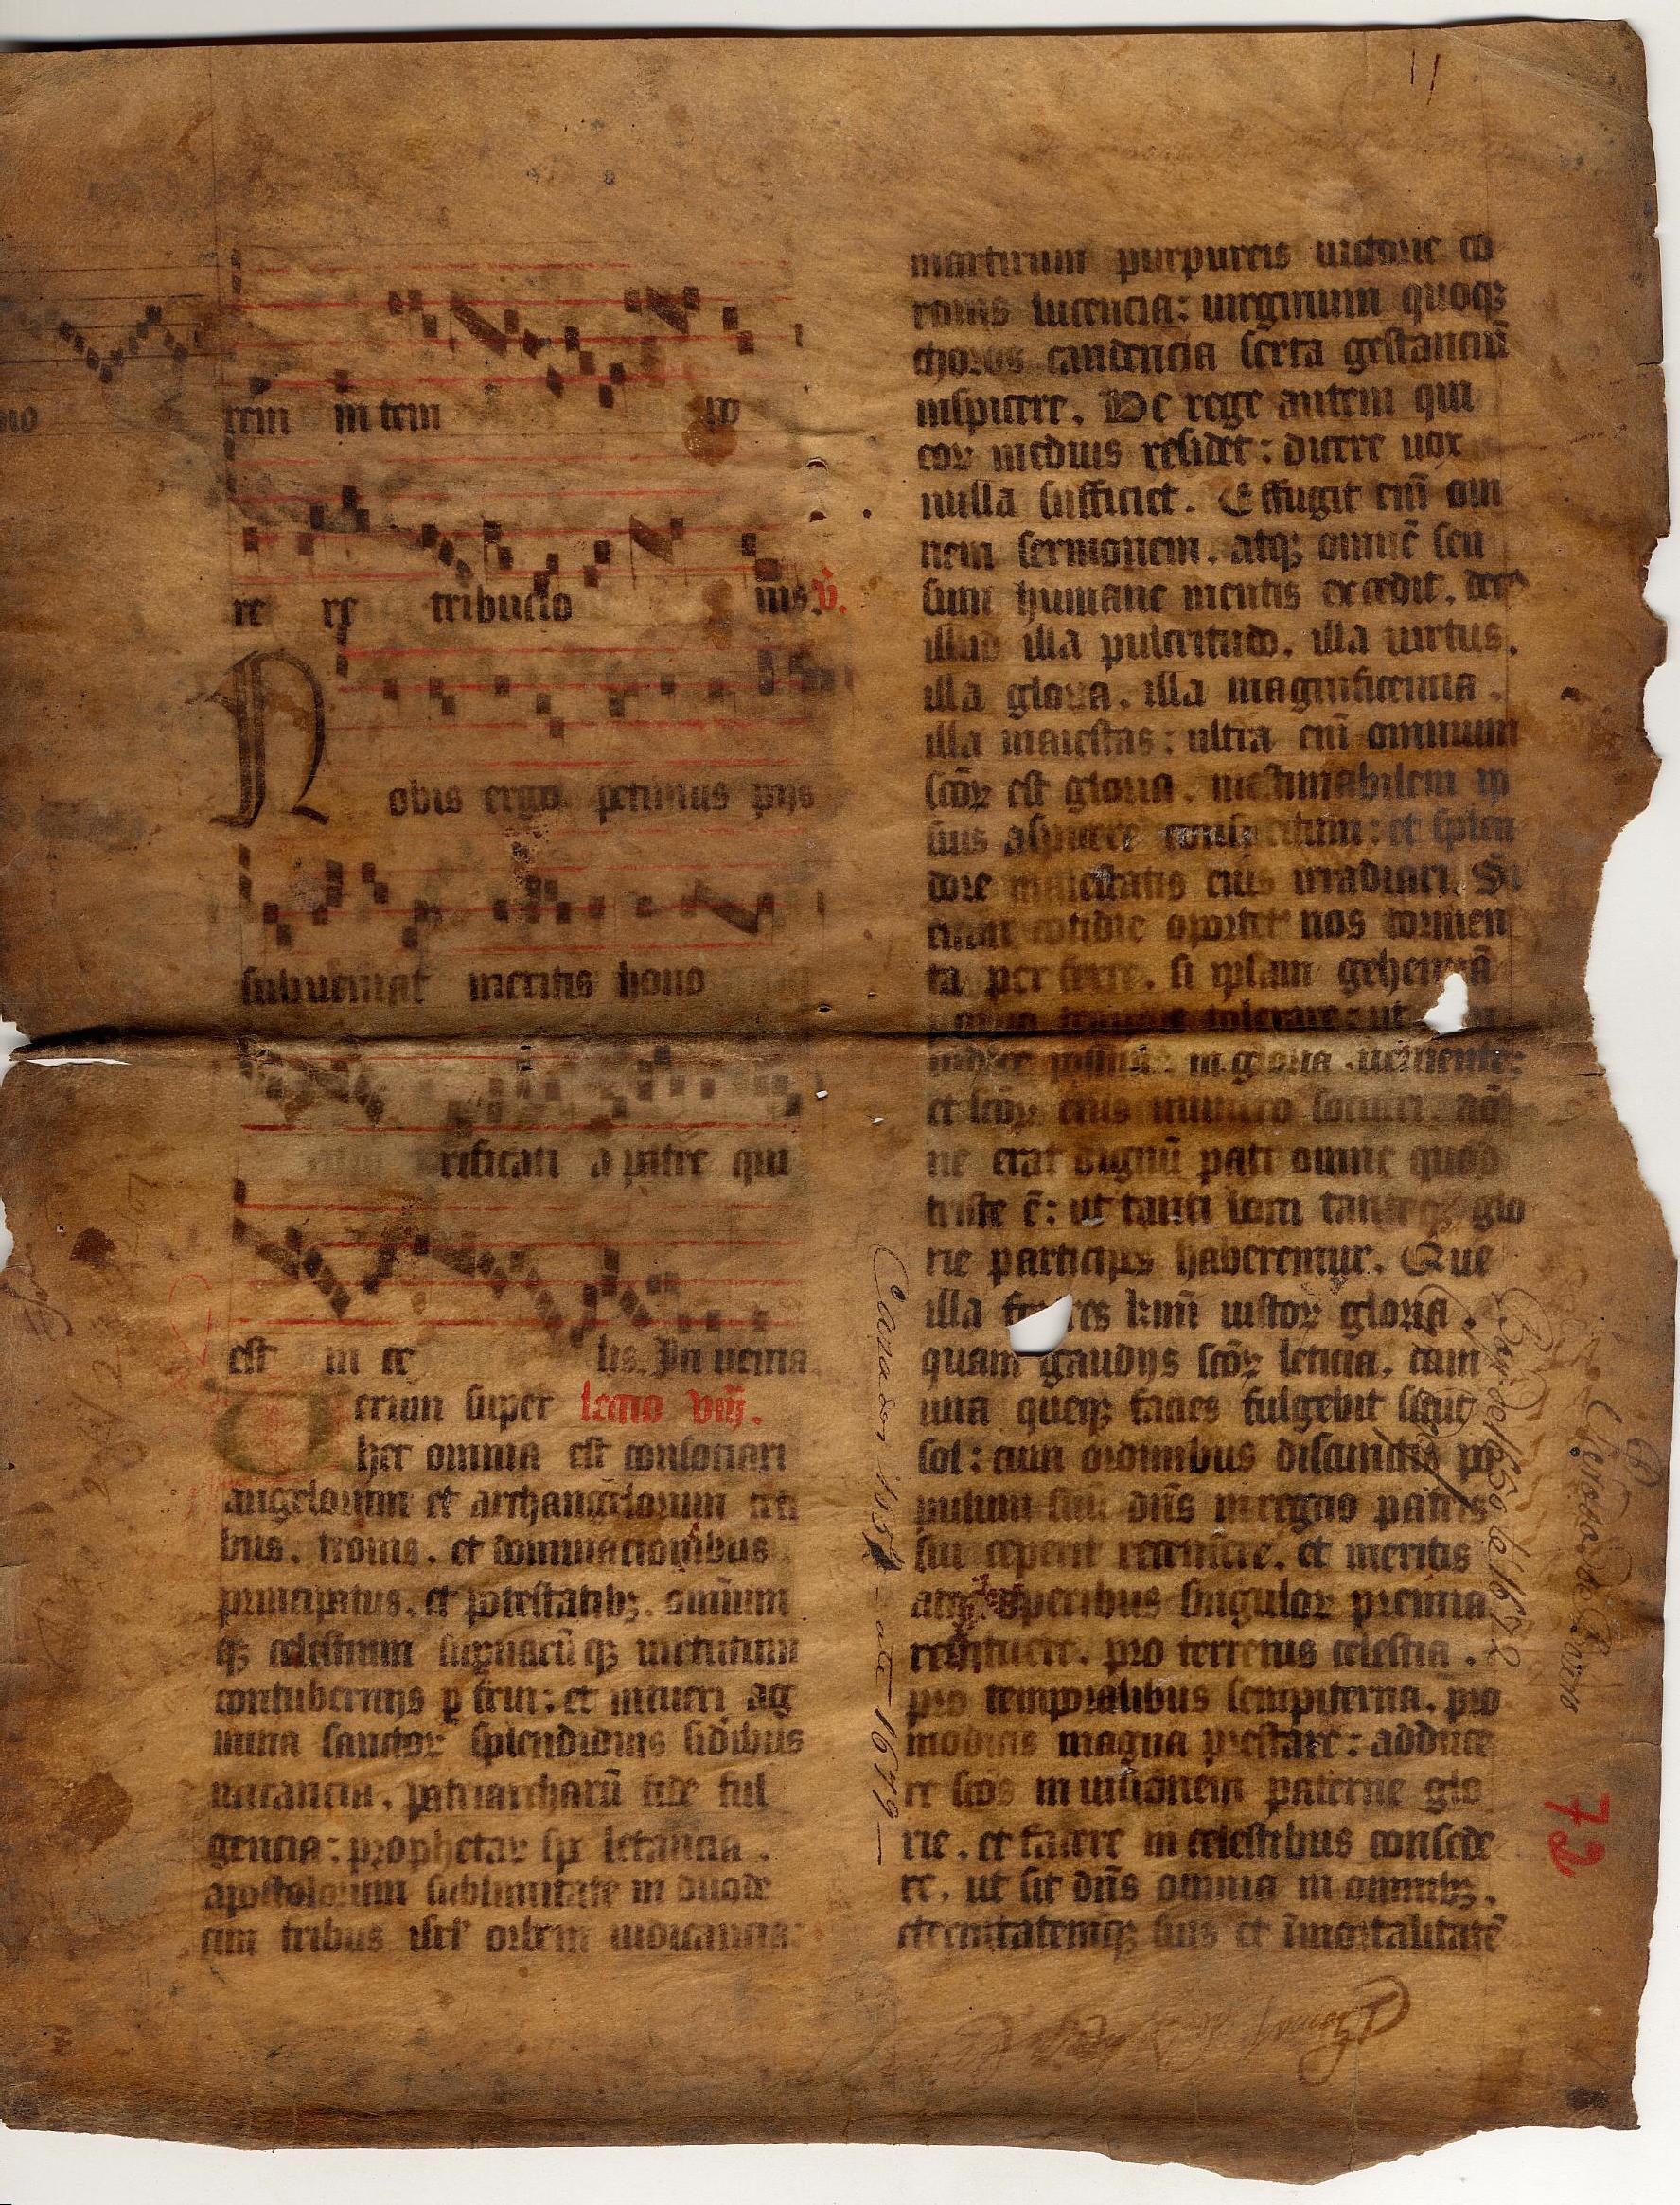 no
rem in tem po
re re tribucio nis. v.
Nobis ergo petimus pijs
subueniat meritis hono
rificati a patre qui
est in ce lis. In uenia
terum super lectio viij.
hec omnia est consociari
angelorum et archangelorum ceti
bus. tronis. et dominacionibus
principatus. et potestatibꝫ. omium
qꝫ celestium supnarūqꝫ uirtutum
contubernijs ꝑ frui: et intueri ag
mina sanctoꝝ splendidius sidibus
micancia. patriarcharū fide ful
gencia: prophetaꝝ spe letancia.
apostolorum sublimitate in duode
cim tribus isrl' orbem iudicancia:
martirum purpureis uictorie co
ronis lucencia: uirginum quoqꝫ
choros candencia serta gestanciū
inspicere. De rege autem qui
eoꝝ medius residet: dicere uox
nulla sufficiet. Effugit eni om
nem sermonem. atqꝫ omnē sen
sum humane mentis excedit. dec
illud illa pulcritudo. illa uirtus.
illa gloria. illa magnificencia.
illa maiestas: ultra eni omnium
scōꝝ est gloria. inestimabilem ip
sius aspicere conspectum: et splen
dore maiestatis eius irradiari. Si
enim cotidie oportet nos tormen
ta per ferre. si ipsam gehennā
paruo tempore tolerare: ut
uidere possimus in gloria uenientē:
et scōꝝ eius numero sociari. nō
ne erat dignū pati omne quod
triste ē: ut tanti boni tanteqꝫ glo
rie particips haberemur. Que
illa fratres kmi iustoꝝ gloria.
quam gaudijs scōꝝ leticia. cum
una queqꝫ facies fulgebit sicut
sol: cum ordinibus distinctis po
pulum suū dn̄s in regno patris
sui ceperit recensere. et meritis
atqꝫ operibus singuloꝝ premia
restituere. pro terrenis celestia.
pro temporalibus sempiterna. pro
modicis magna prestare: adduce
re scōs in uisionem paterne glo
rie. et facere in celestibus consede
re. ut sit dn̄s omnia in omnibꝫ.
eternitatemqꝫ suis et īmortalitatē
1679
del 1650 a 1672
72
11